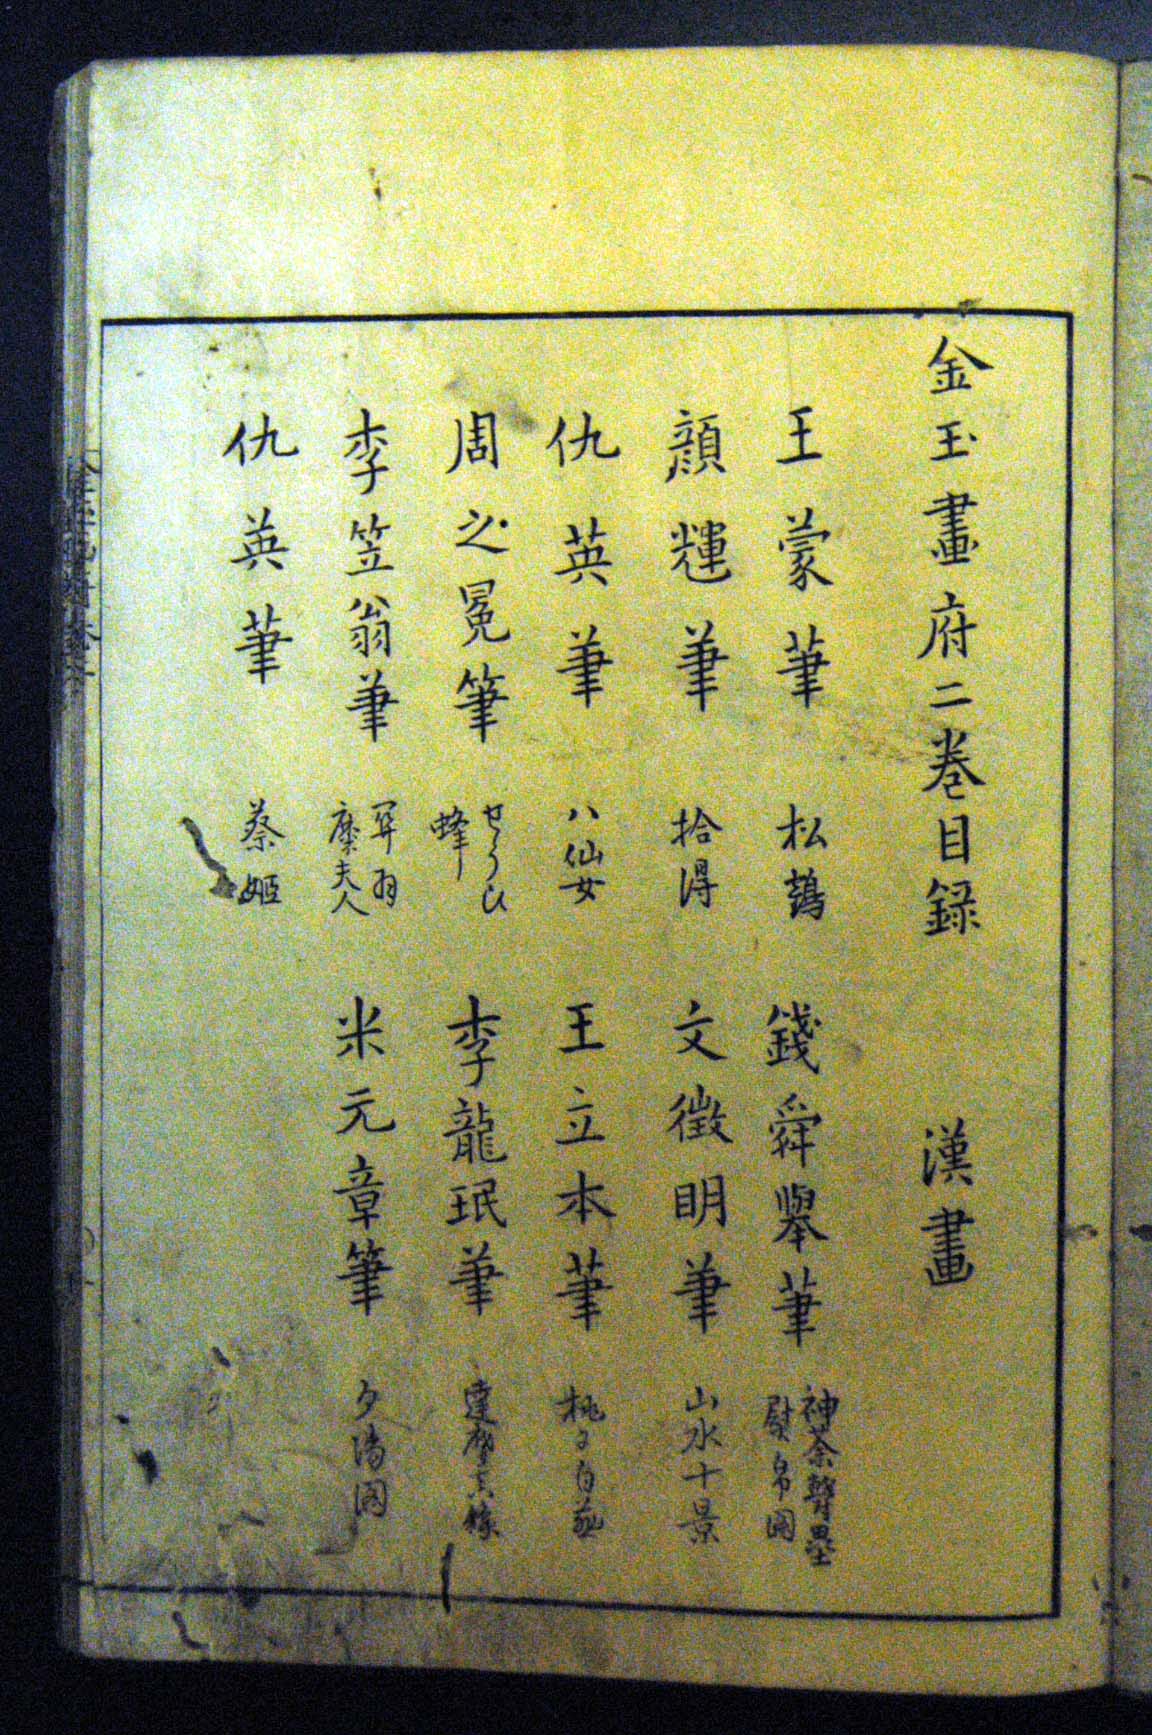 金玉畫府二巻目録　漢畫
王蒙筆　松鶴　錢舜擧筆　神荼鬱壘
顔輝筆　拾得　文徴明筆　山水十景
仇英筆　八仙女　王立本筆
周之冕筆　蜂　李龍珉筆
李笠翁筆　関羽　糜夫人　米元章筆　夕陽図
仇英筆　蔡姫